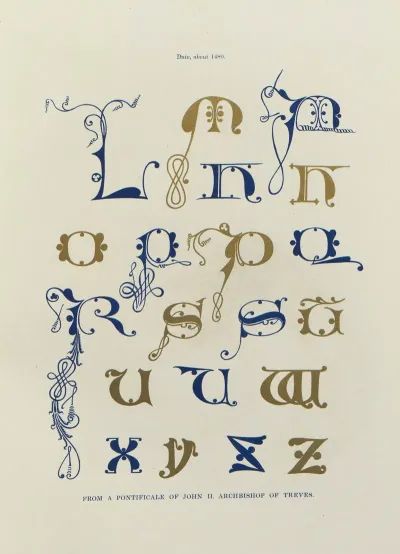 Date, about 1480.
L M M
N N
O P P Q
R S S
U U W
X Y Z Z
FROM A PONTIFICALE OF JOHN II. ARCHBISHOP OF TREVES.